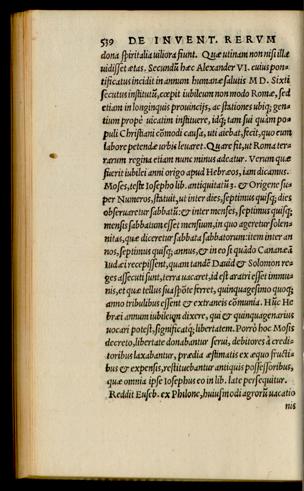 539 DE INVENT. RERVM
dona spiritalia uiliora fiunt. Quæ utinam non nisi illa
uidisset ætas. Secundũ hæc Alexander VI. cuius pon-
tificatus incidit in annum humanæ salutis M D. Sixti
secutus institutũ, cœpit iubileum non modo Romæ, sed
etiam in longinquis prouincijs, ac stationes ubiq; gen-
tium propè uicatim instituere, idq; tam sui quàm po-
puli Christiani cõmodi causa, uti aiebat, fecit, quo eum
labore petendæ urbis leuaret. Quare fit, ut Roma ter-
rarum regina etiam nunc minus adeatur. Verum quæ
fuerit iubilei anni origo apud Hebræos, iam dicamus.
Moses, teste Iosepho lib. antiquitatũ 3. & Origene su-
per Numeros, statuit, ut inter dies, septimus quisq; dies
obseruaretur sabbatũ: & inter menses, septimus quisq;
mensis sabbatum esset mensium, in quo ageretur solen-
nitas, quæ diceretur sabbata sabbatorum: item inter an
nos, septimus quisq; annus, & in eo si quãdo Cananæã
Iudæi recepissent, quam tandẽ Dauid & Solomon re-
ges assecuti sunt, terra uacaret, id est aratri esset immu-
nis, et quæ tellus sua spõte ferret, quinquagesimo quoq;
anno tribulibus essent & extraneis cõmunia. Hũc He
bræi annum iubileum dixere, qui & quinquagenarius
uocari potest, significatq; libertatem. Porrò hoc Mosis
decreto, libertate donabantur serui, debitores à credi-
toribus laxabantur, prædia æstimatis ex æquo fructi-
bus & expensis, restituebantur antiquis possessoribus,
quæ omnia ipse Iosephus eo in lib. late persequitur.
Reddit Euseb. ex Philone, huiusmodi agrorũ uacatio
nis